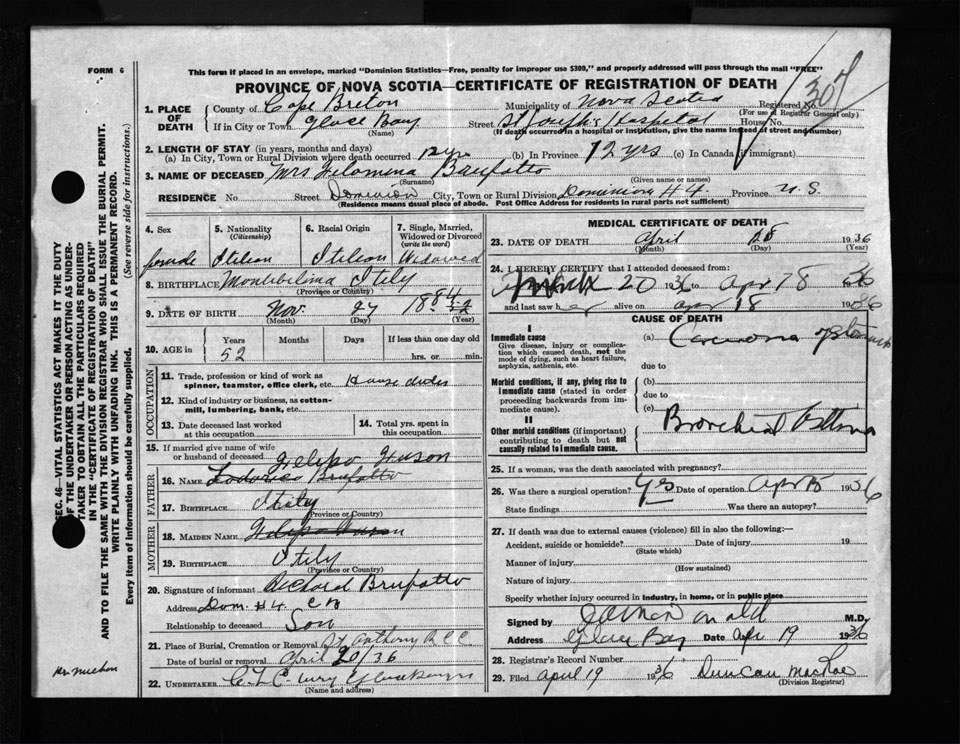 FORM 6
This form if placed in an envelope, marked "Dominion Statistics—Free, penalty for improper use $300," and properly addressed will pass through the mail "FREE"
PROVINCE OF NOVA SCOTIA—CERTIFICATE OF REGISTRATION OF DEATH
307
1. PLACE OF DEATH
County of Cape Breton Municipality of Nova Scotia Registered No.
(For use of Registrar General only)
If in City or Town Glace Bay Street St Joseph's Hospital House No.
(Name) (If death occurred in a hospital or institution, give the name instead of street and number)
2. LENGTH OF STAY (in years, months and days)
(a) In City, Town or Rural Division where death occurred 12 yrs (b) In Province 12 yrs (c) In Canada (if immigrant)
3. NAME OF DECEASED Mrs Filomina Brufatto
(Surname) (Given name or names)
RESIDENCE No. Street Dominion City, Town or Rural Division Dominion #4. Province N.S.
(Residence means usual place of abode. Post Office Address for residents in rural parts not sufficient)
4. Sex
5. Nationality (Citizenship)
6. Racial Origin
7. Single, Married, Widowed or Divorced (write the word)
female Itilian Itilian Widowed
8. BIRTHPLACE Itily
(Province or Country)
9. DATE OF BIRTH Nov. 27 1884
(Month) (Day) (Year)
10. AGE in
Years Months Days If less than one day old
52 hrs. or min.
OCCUPATION
11. Trade, profession or kind of work as spinner, teamster, office clerk, etc. House duties
12. Kind of industry or business, as cotton-mill, lumbering, bank, etc.
13. Date deceased last worked at this occupation
14. Total yrs. spent in this occupation
15. If married give name of wife or husband of deceased
FATHER
16. NAME Brufatto
17. BIRTHPLACE Itily
(Province or Country)
MOTHER
18. MAIDEN NAME
19. BIRTHPLACE Itily
(Province or Country)
20. Signature of informant Richard Brufatto
Address Dom. #4 C B
Relationship to deceased Son
21. Place of Burial, Cremation or Removal St Anthony R C C
Date of burial or removal April 20/36
22. UNDERTAKER
(Name and address)
MEDICAL CERTIFICATE OF DEATH
23. DATE OF DEATH April 18 1936
(Month) (Day) (Year)
24. I HEREBY CERTIFY that I attended deceased from:
March 20 1936 to Apr 18 1936
and last saw her alive on Apr 18 1936
CAUSE OF DEATH
I
Immediate cause
Give disease, injury or complication which caused death, not the mode of dying, such as heart failure, asphyxia, asthenia, etc.
(a) Carcinoma of Stomach
due to
Morbid conditions, if any, giving rise to immediate cause (stated in order proceeding backwards from immediate cause).
(b)
due to
(c)
II
Other morbid conditions (if important) contributing to death but not causally related to immediate cause.
Bronchial Asthma
25. If a woman, was the death associated with pregnancy?
26. Was there a surgical operation? Yes Date of operation Apr 15 1936
State findings Was there an autopsy?
27. If death was due to external causes (violence) fill in also the following:—
Accident, suicide or homicide? Date of injury 19
(State which)
Manner of injury
(How sustained)
Nature of injury
Specify whether injury occurred in Industry, in home, or in public place
Signed by M.D.
Address Glace Bay Date Apr 19 1936
28. Registrar's Record Number
29. Filed April 19 1936 Duncan MacRae
(Division Registrar)
SEC. 46—VITAL STATISTICS ACT MAKES IT THE DUTY
OF THE UNDERTAKER OR PERSON ACTING AS UNDERTAKER TO OBTAIN ALL THE PARTICULARS REQUIRED
IN THE "CERTIFICATE OF REGISTRATION OF DEATH"
AND TO FILE THE SAME WITH THE DIVISION REGISTRAR WHO SHALL ISSUE THE BURIAL PERMIT.
WRITE PLAINLY WITH UNFADING INK. THIS IS A PERMANENT RECORD.
Every item of information should be carefully supplied. (See reverse side for instructions.)